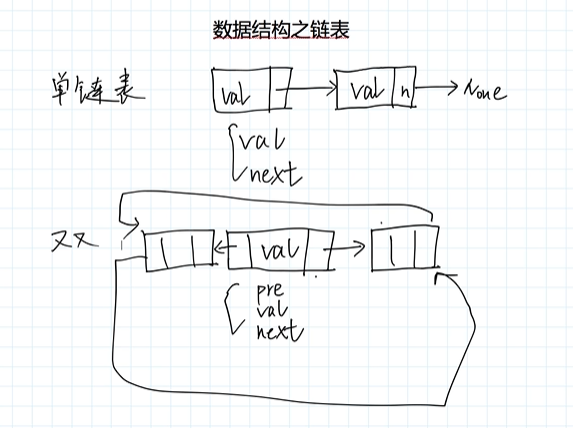 数据结构之链表
单链表 val val n None
val
next
双 val
pre
val
next